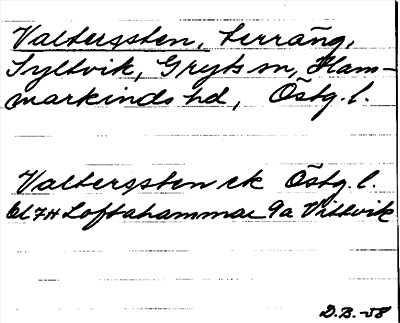 Valtergsten, terräng,
Syltvik, Gryts sn, Ham-
markinds hd, Östg. l.
Valtergsten ek Östg. l.
Bl 7H Loftahammar 9a Vittvik
D.B.-58